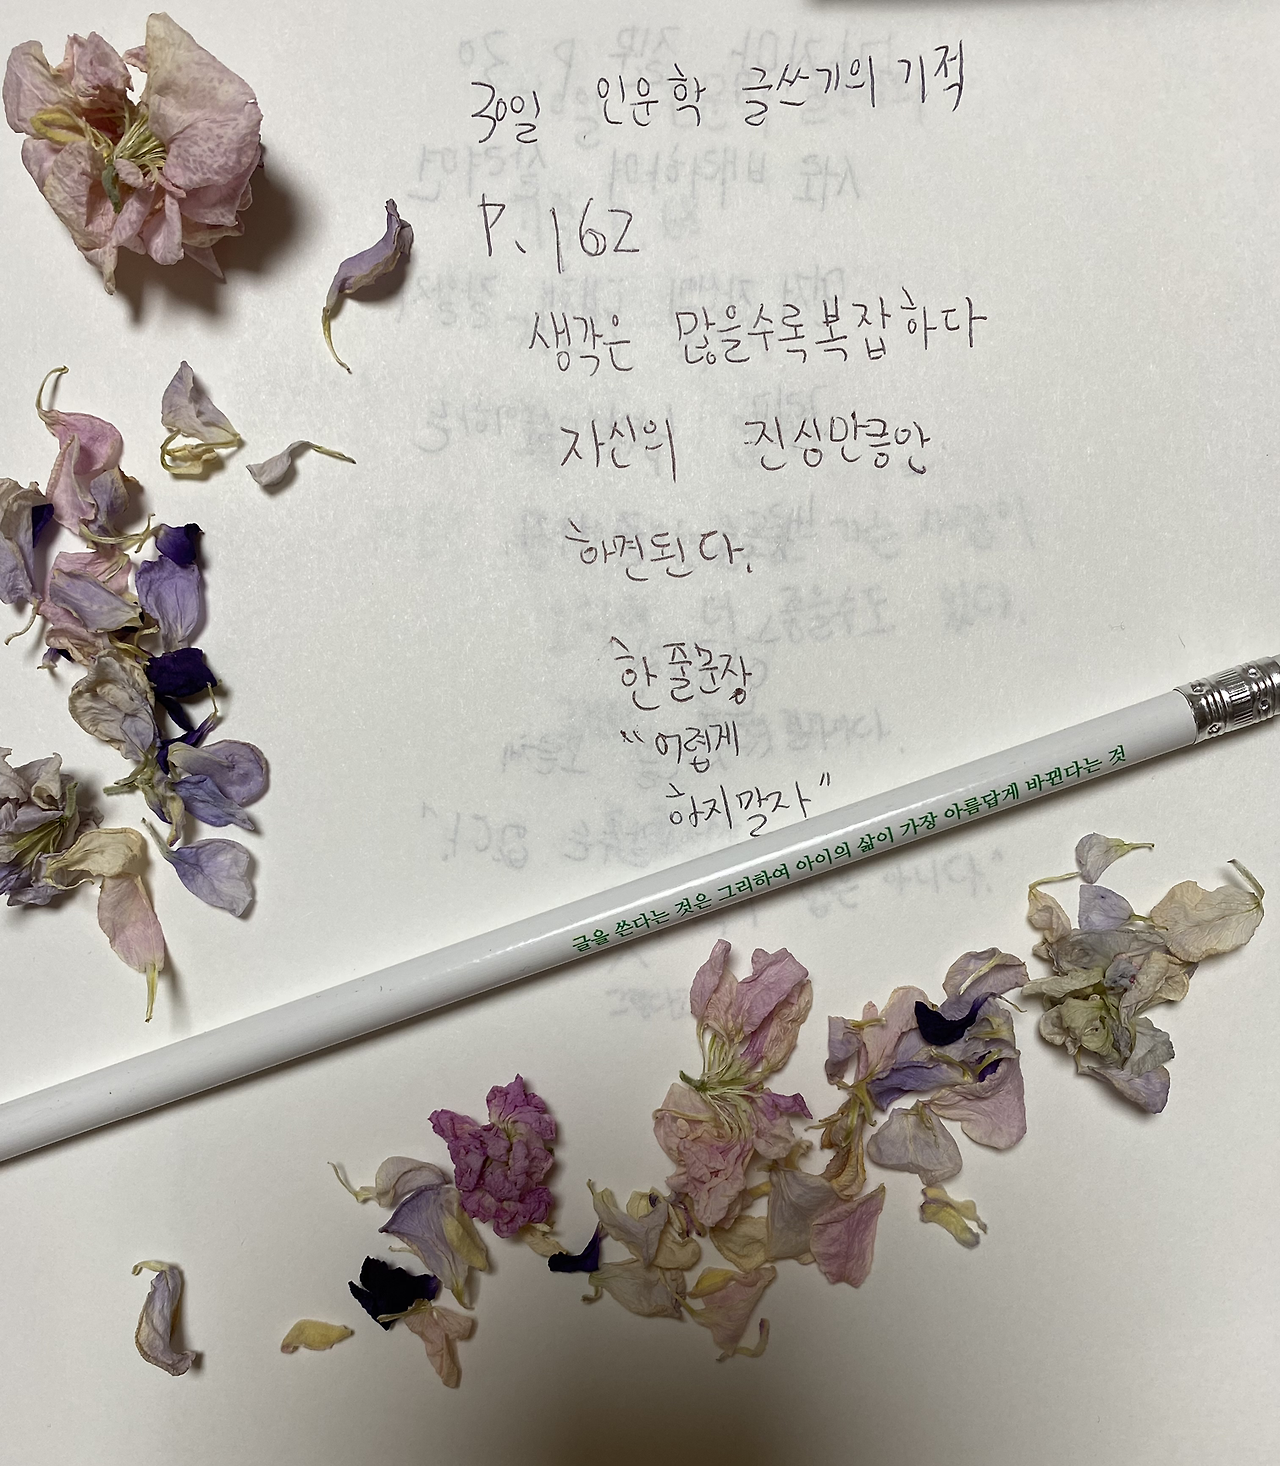 30일 인문학 글쓰기의 기적
P. 162
생각은 많을수록 복잡하다
자신의 진심만큼만
하면된다.
한 줄문장
"어렵게
하지말자"
글을 쓴다는 것은 그리하여 아이의 삶이 가장 아름답게 바뀐다는 것